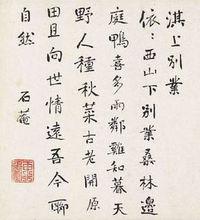 淇上別業
依〻西山下別業桑林邊
庭鴨喜多雨鄰雞知暮天
野人種秋菜古老開原
田且向世情遠吾今聊
自然 石菴